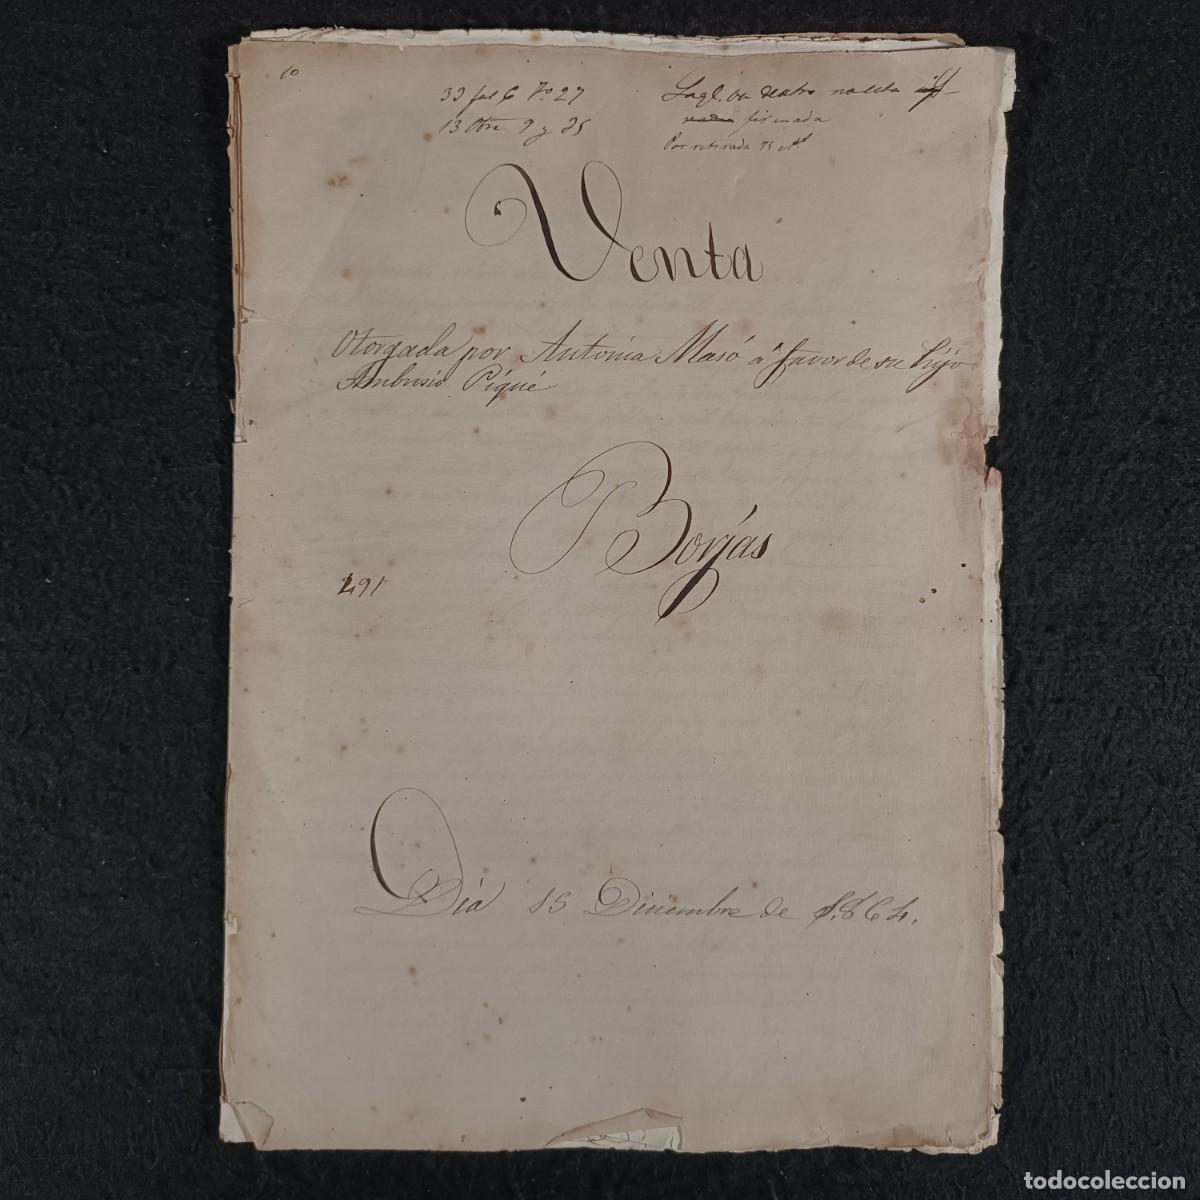 10
33 fol 6 7º 27
13 Otra 9 y 25
dentro no esta
firmada
Por retirada 75
Venta
Otorgada por Antonia Masó á favor de su hijo
Ambrosio Piqué
Borjas
491
Día 15 Diciembre de 1.864.
todocoleccion